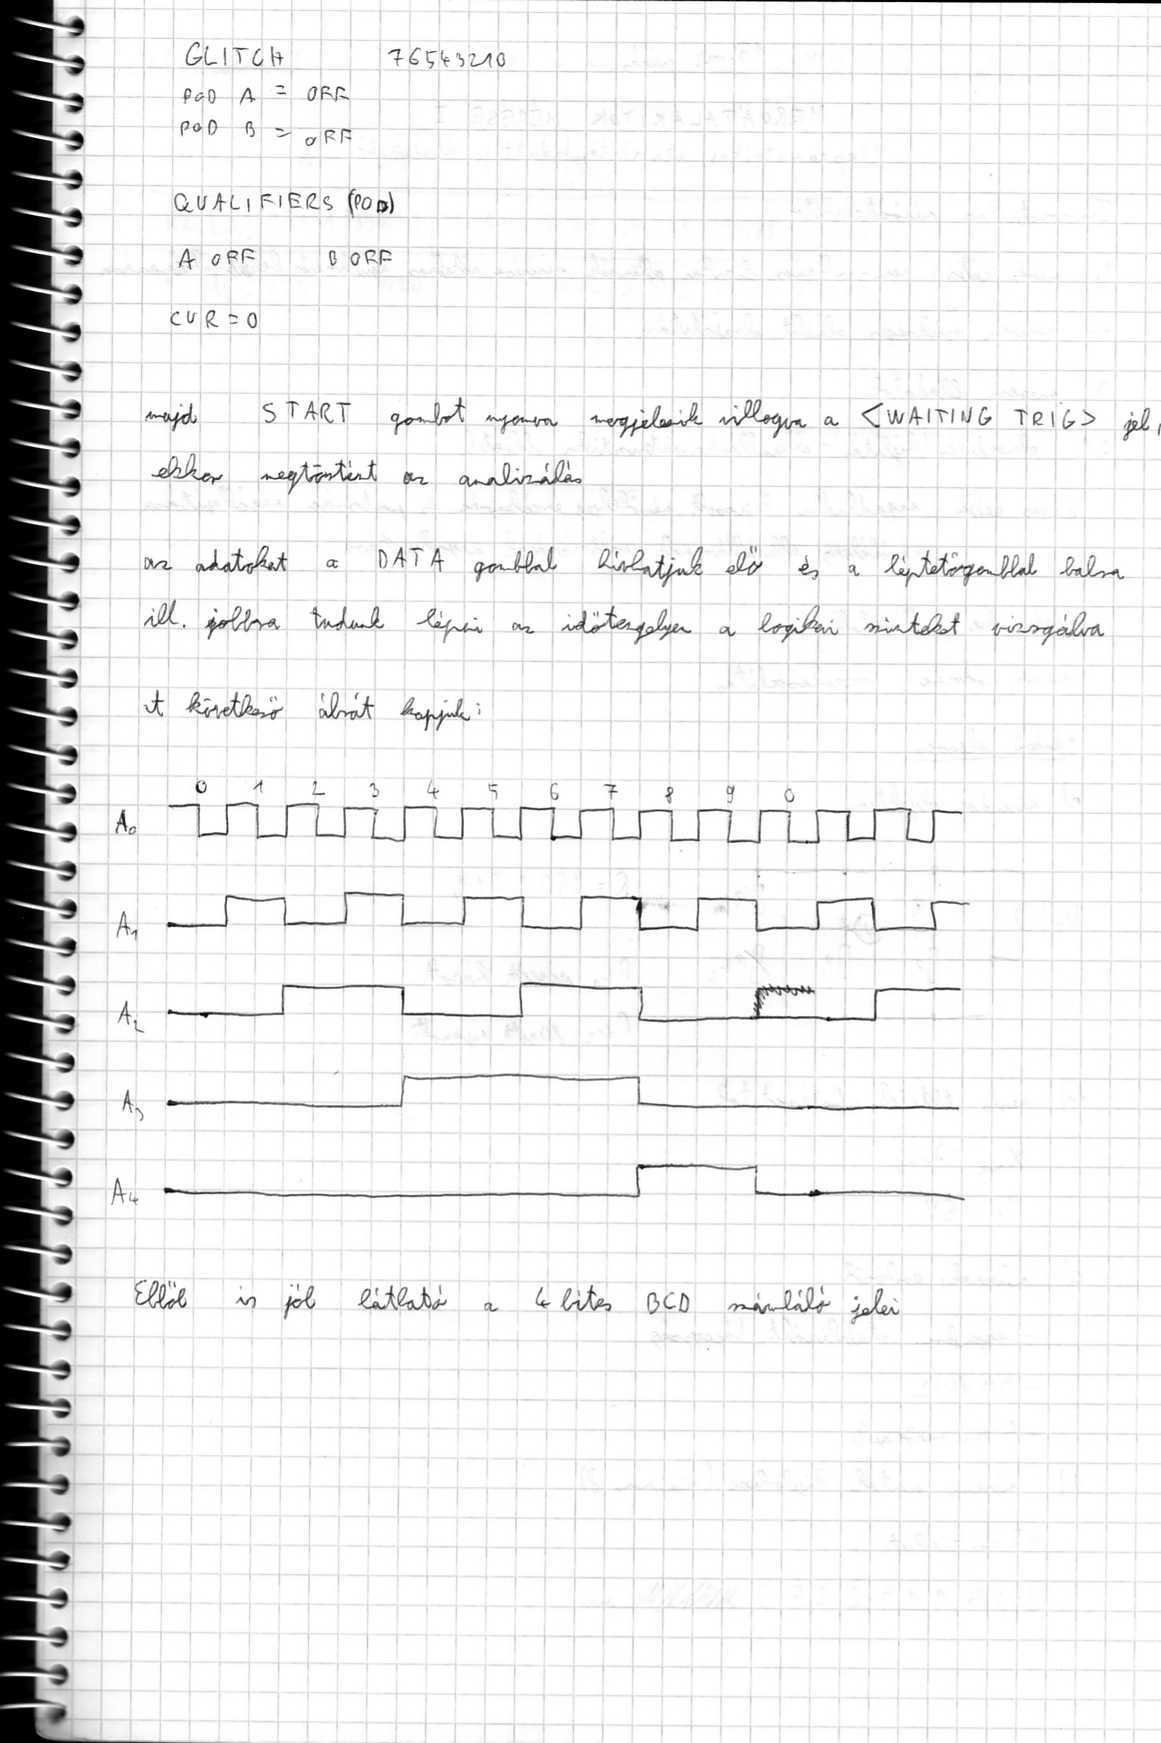 GLITCH 76543210
POD A = OFF
POD B = OFF
QUALIFIERS (POD)
A OFF B OFF
CUR = 0
majd START gombot nyomva megjelenik villogva a <WAITING TRIG> jel,
ekkor megtörtént az analizálás
az adatokat a DATA gombbal hívhatjuk elő és a léptetőgombbal balra
ill. jobbra tudunk lépni az időtengelyen a logikai szinteket vizsgálva
A következő ábrát kapjuk:
0 1 2 3 4 5 6 7 8 9 0
A0
A1
A2
A3
A4
Ebből is jól látható a 4 bites BCD számláló jelei